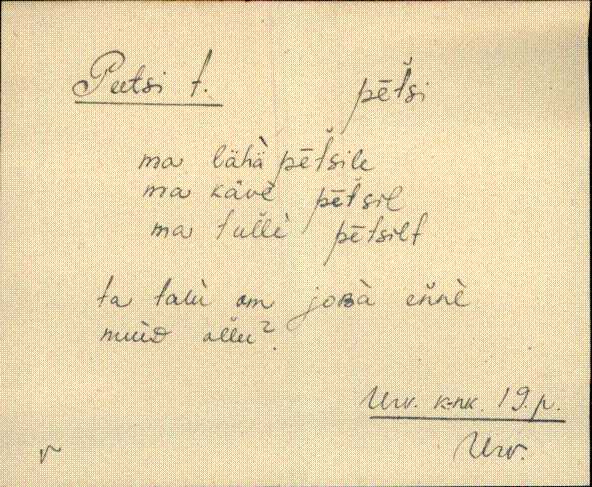 Peetsi t. pēťsi
ma lähä̀ pēťsile
ma käve̮ pēťsil
ma tulľè pētsilt
ta talù om joBà eňnè
muiD olľu².
Urv. k-nk. 19.p.
Urv.